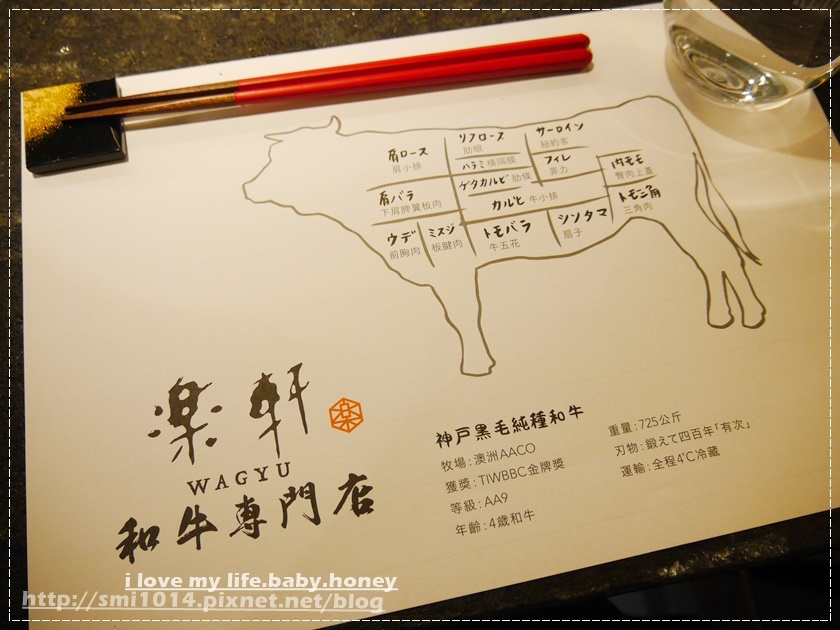 肩ロース
肩小排
リブロース
肋眼
サーロイン
紐約客
ハラミ 橫隔膜
フィレ
菲力
内モモ
臀肉上蓋
肩バラ
下肩胛翼板肉
ゲタカルビ 肋條
カルビ 牛小排
トモ三角
三角肉
ウデ
前胸肉
ミスジ
板腱肉
トモバラ
牛五花
シンタマ
扇子
楽軒
楽
WAGYU
和牛専門店
神戸黒毛純種和牛
牧場:澳洲AACO
獲獎:TIWBBC金牌獎
等級:AA9
年齡:4歲和牛
重量:725公斤
刃物:鍛えて四百年「有次」
運輸:全程4°C冷藏
i love my life.baby.honey
http://smi1014.pixnet.net/blog